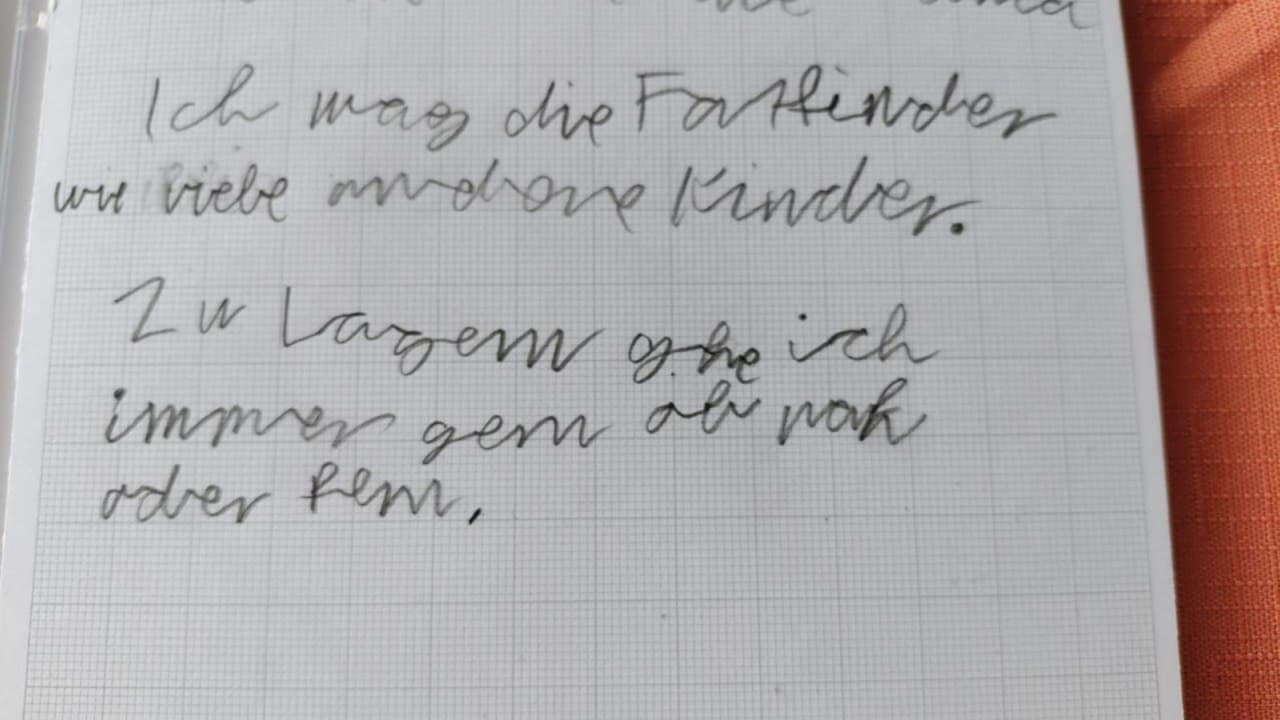 Ich mag die Fatfinder
wie viele andere Kinder.
Zu Lagern gehe ich
immer gern ob nah
oder fern.